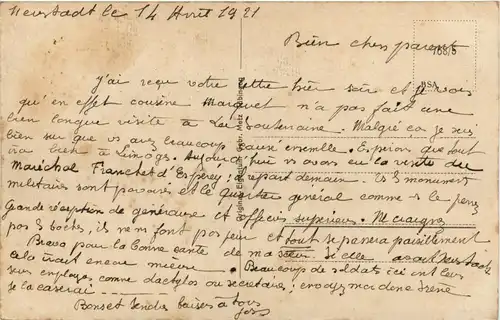 Neustadt le 14 Avril 1921
Bien chers parents
76875
BSA
j'ai reçu votre lettre hier soir et je vois
qu'en effet cousine Marquet n'a pas fait une
bien longue visite à La Souterraine. Malgré ça je suis
bien sur que vs avez beaucoup causé ensemble. Espérons que tout
ira bien à Limoges. Aujourd'hui ns avons eu la visite du
Maréchal Franchet d'Esperey; il repart demain. Les monuments
militaires sont pavoisés et le quartier général comme vs le pensez
Grande réception de généraux et officiers supérieurs. Ne craignez
pas les boches, ils ne font pas peur et tout se passera paisiblement
Bravo pour la bonne entente de ma sœur si elle avait
cela irait encore mieux. Beaucoup de soldats ici ont leurs
employés comme dactylos ou secrétaires; envoyez moi donc Irène
je la caserai
Bonset tendres baisers à tous